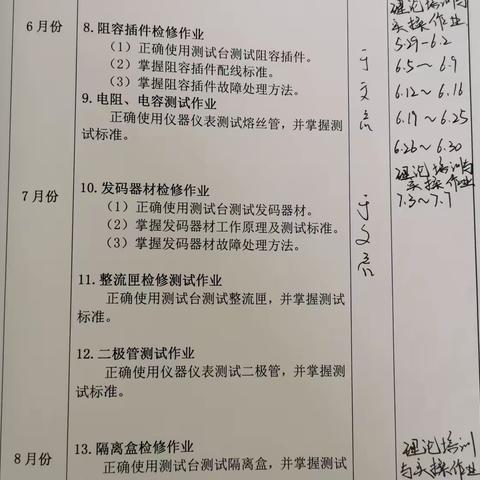 理论培训与
实操作业
6月份
8. 阻容插件检修作业
（1）正确使用测试台测试阻容插件。
（2）掌握阻容插件配线标准。
（3）掌握阻容插件故障处理方法。
9. 电阻、电容测试作业
正确使用仪器仪表测试熔丝管，并掌握测
试标准。
于
文
亮
5.29-6.2
6.5~6.9
6.12~6.16
6.19~6.25
6.26~6.30
7月份
10. 发码器材检修作业
（1）正确使用测试台测试发码器材。
（2）掌握发码器材工作原理及测试标准。
（3）掌握发码器材故障处理方法。
11. 整流匣检修测试作业
正确使用测试台测试整流匣，并掌握测试
标准。
12. 二极管测试作业
正确使用仪器仪表测试二极管，并掌握测
试标准。
于
文
亮
理论培训与
实操作业
7.3~7.7
8月份
13. 隔离盒检修作业
正确使用测试台测试隔离盒，并掌握测试
理论培训
与实操作业